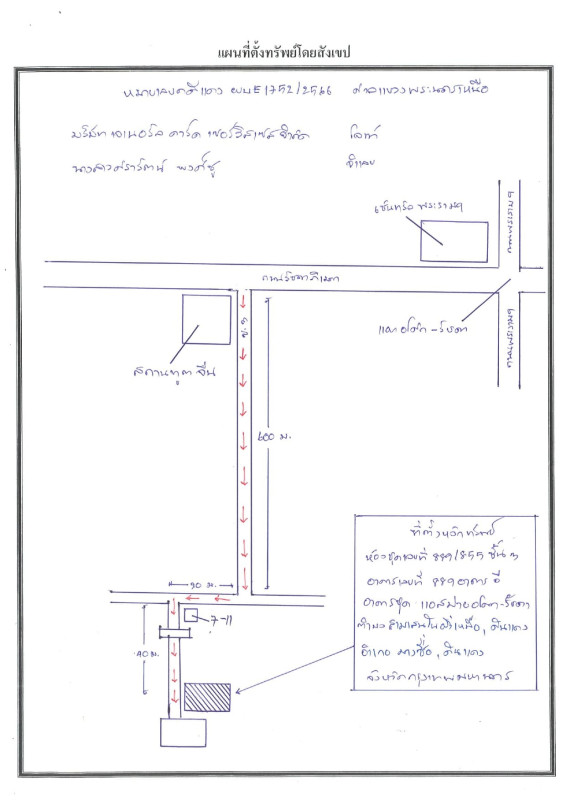 แผนที่ตั้งทรัพย์โดยสังเขป
หมายเลขคดีแดง ผบE1752/2566 ศาลแขวงพระนครเหนือ
บริษัท เจเนอรัล คาร์ด เซอร์วิสเซส จำกัด โจทก์
นางสาวศรารัตน์ จำเลย
เซ็นทรัล พระราม๙
ถนนพระราม๙
ถนนรัชดาภิเษก
แยก อโศก - รัชดา
ถนนพระราม๙
สถานทูต จีน
ซ.๓
600 ม.
90 ม.
7-11
40 ม.
ที่ตั้งทรัพย์
ห้องชุดเลขที่ ๙๙๑/๔๕๕ ชั้น ๓
อาคารเลขที่ ๙๙๑ อาคาร อี
อาคารชุด แอสปาย อโศก-รัชดา
ตำบล สามเสนในฝั่งเหนือ, ดินแดง
อำเภอ บางซื่อ, ดินแดง
จังหวัดกรุงเทพมหานคร